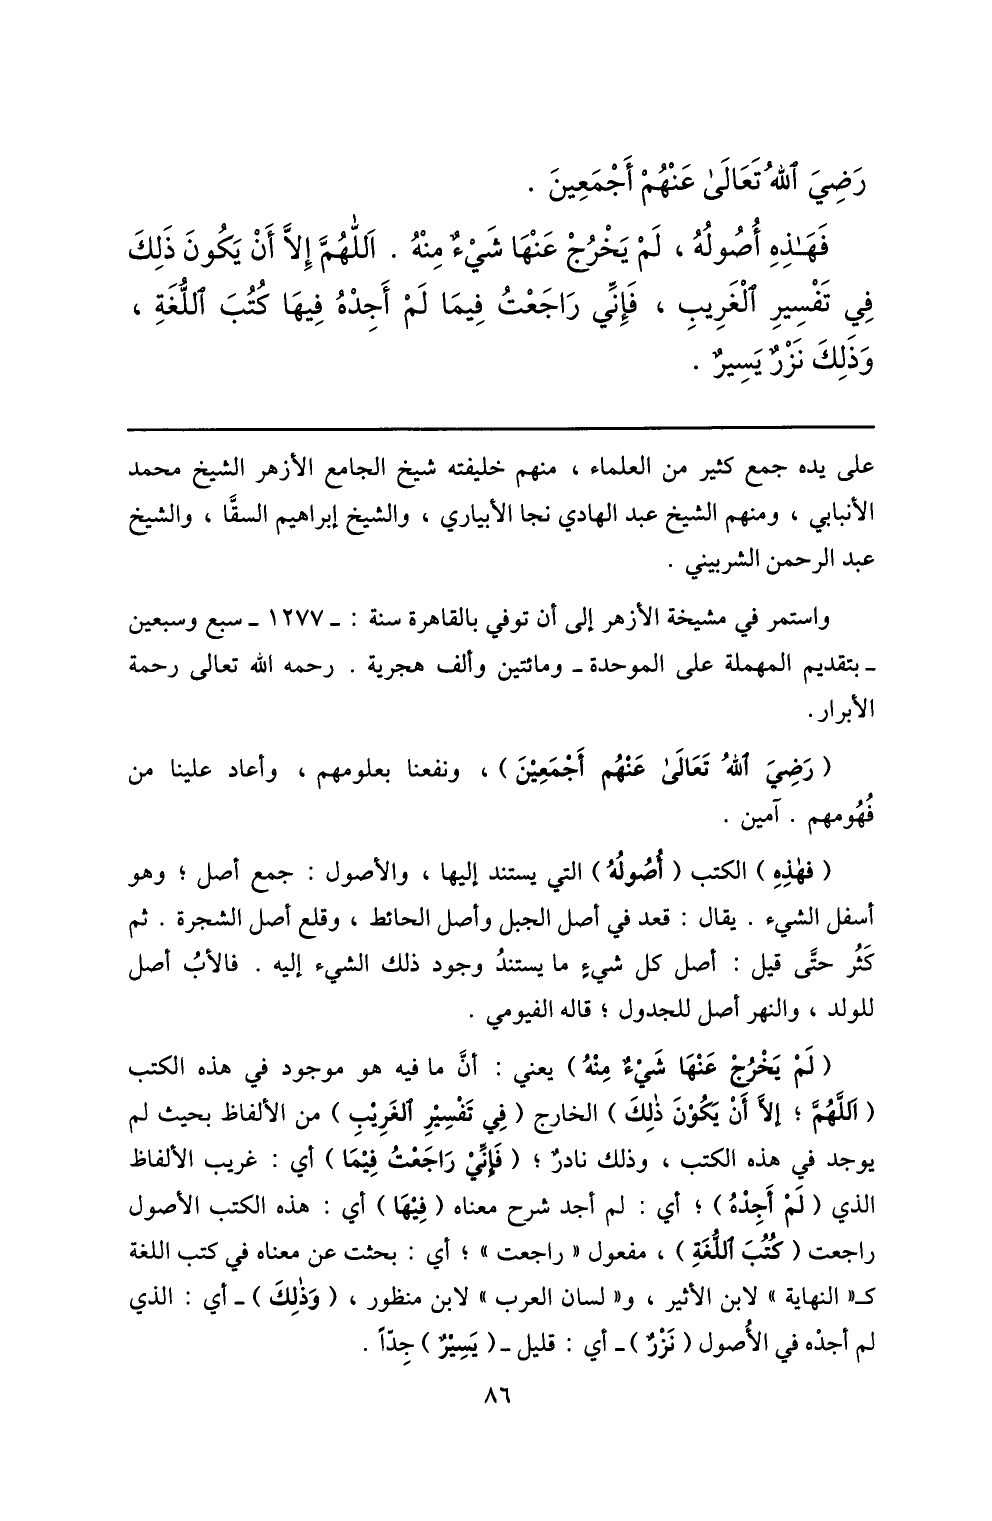 رَضِيَ ٱللهُ تَعَالَىٰ عَنْهُمْ أَجْمَعِينَ .
فَهَـٰذِهِ أُصُولُهُ ، لَمْ يَخْرُجْ عَنْهَا شَيْءٌ مِنْهُ . اَللّٰهُمَّ إِلاَّ أَنْ يَكُونَ ذَلِكَ
فِي تَفْسِيرِ ٱلْغَرِيبِ ، فَإِنِّي رَاجَعْتُ فِيمَا لَمْ أَجِدْهُ فِيهَا كُتُبَ ٱللُّغَةِ ،
وَذَلِكَ نَزْرٌ يَسِيرٌ .
على يده جمع كثير من العلماء ، منهم خليفته شيخ الجامع الأزهر الشيخ محمد
الأنبابي ، ومنهم الشيخ عبد الهادي نجا الأبياري ، والشيخ إبراهيم السقَّا ، والشيخ
عبد الرحمن الشربيني .
واستمر في مشيخة الأزهر إلى أن توفي بالقاهرة سنة : ـ ١٢٧٧ ـ سبع وسبعين
ـ بتقديم المهملة على الموحدة ـ ومائتين وألف هجرية . رحمه الله تعالى رحمة
الأبرار .
( رَضِيَ ٱللهُ تَعَالَىٰ عَنْهُم أَجْمَعِيْنَ ) ، ونفعنا بعلومهم ، وأعاد علينا من
فُهُومهم . آمين .
( فهٰذِهِ ) الكتب ( أُصُولُهُ ) التي يستند إليها ، والأصول : جمع أصل ؛ وهو
أسفل الشيء . يقال : قعد في أصل الجبل وأصل الحائط ، وقلع أصل الشجرة . ثم
كَثُر حتَّى قيل : أصل كل شيءٍ ما يستندُ وجود ذلك الشيء إليه . فالأبُ أصل
للولد ، والنهر أصل للجدول ؛ قاله الفيومي .
( لَمْ يَخْرُجْ عَنْهَا شَيْءٌ مِنْهُ ) يعني : أنَّ ما فيه هو موجود في هذه الكتب
( اَللَّهُمَّ ؛ إلاَّ أَنْ يَكُوْنَ ذٰلِكَ ) الخارج ( فِي تَفْسِيْرِ ٱلغَرِيْبِ ) من الألفاظ بحيث لم
يوجد في هذه الكتب ، وذلك نادرٌ ؛ ( فَإِنِّيْ رَاجَعْتُ فِيْمَا ) أي : غريب الألفاظ
الذي ( لَمْ أَجِدْهُ ) ؛ أي : لم أجد شرح معناه ( فِيْهَا ) أي : هذه الكتب الأصول
راجعت ( كُتُبَ ٱللُّغَةِ ) ، مفعول « راجعت » ؛ أي : بحثت عن معناه في كتب اللغة
كـ« النهاية » لابن الأثير ، و« لسان العرب » لابن منظور ، ( وَذٰلِكَ ) ـ أي : الذي
لم أجدْه في الأُصول ( نَزْرٌ ) ـ أي : قليل ـ ( يَسِيْرٌ ) جِدّاً .
٨٦